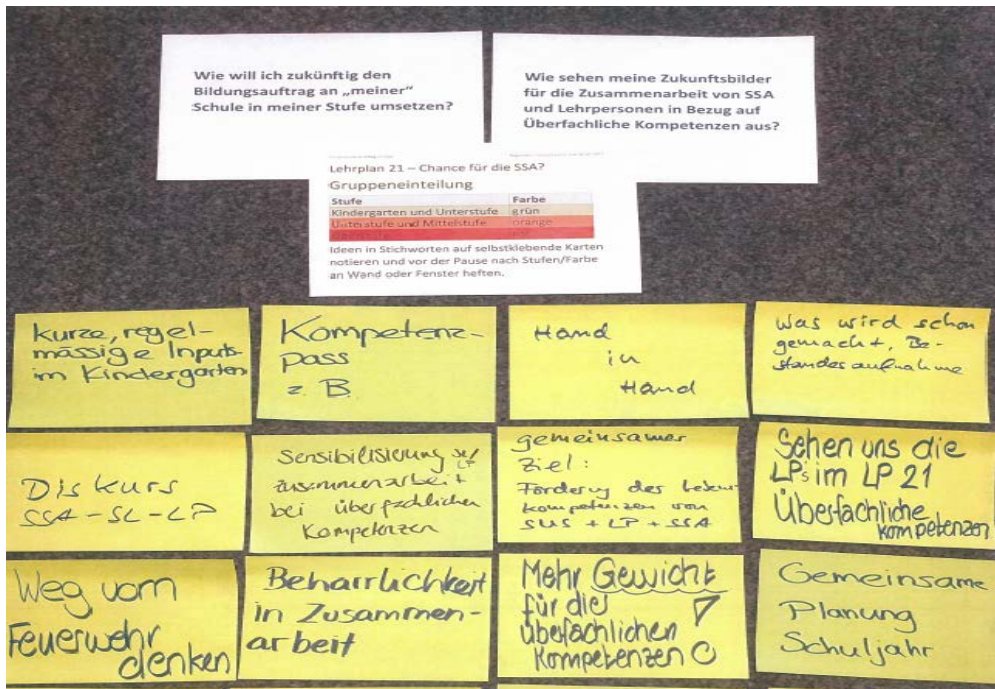 Wie will ich zukünftig den
Bildungsauftrag an „meiner"
Schule in meiner Stufe umsetzen?
Wie sehen meine Zukunftsbilder
für die Zusammenarbeit von SSA
und Lehrpersonen in Bezug auf
Überfachliche Kompetenzen aus?
Lehrplan 21 – Chance für die SSA?
Gruppeneinteilung
Stufe Farbe
Kindergarten und Unterstufe grün
Unterstufe und Mittelstufe orange
Ideen in Stichworten auf selbstklebende Karten
notieren und vor der Pause nach Stufen/Farbe
an Wand oder Fenster heften.
kurze, regel-
mässige Inputs
im Kindergarten
Kompetenz-
pass
z. B.
Hand
in
Hand
Was wird schon
gemacht, Be-
standesaufnahme
Diskurs
SSA-SL-LP
Sensibilisierung SL/
LP
Zusammenarbeit
bei überfachlichen
Kompetenzen
gemeinsamer
Ziel:
Förderung der Lebens
kompetenzen von
SUS + LP + SSA
Sehen uns die
LPs im LP 21
Überfachliche
Kompetenzen
Weg vom
Feuerwehr
denken
Beharrlichkeit
in Zusammen-
arbeit
Mehr Gewicht
für die
übefachlichen
Kompetenzen
Gemeinsame
Planung
Schuljahr